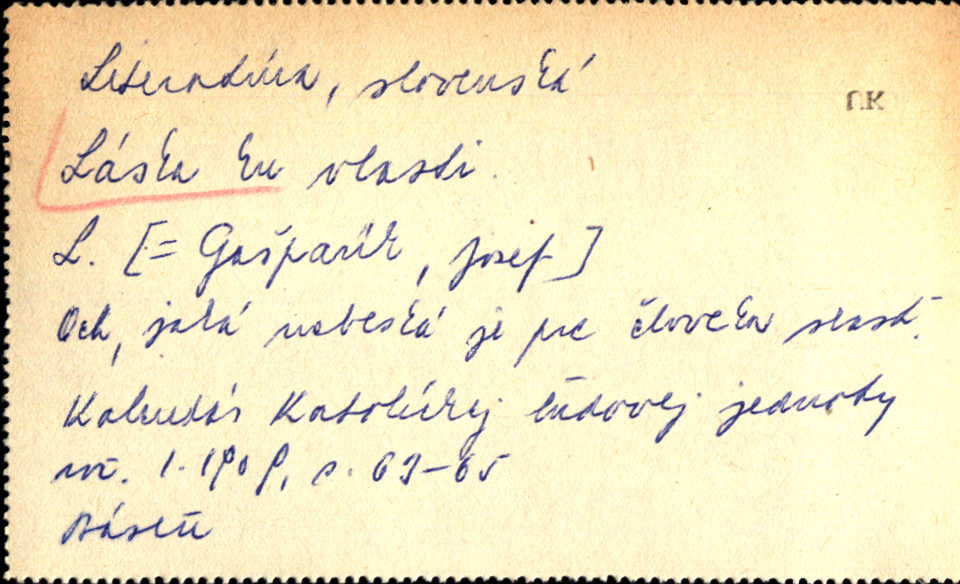 Literatúra, slovenská
ÚK
Láska ku vlasti.
L. [= Gašparík, Jozef]
Och, jaká nebeská je pre človeka slasť.
Kalendár Katolíckej ľudovej jednoty
roč. 1. 1909, s. 63-65
Báseň